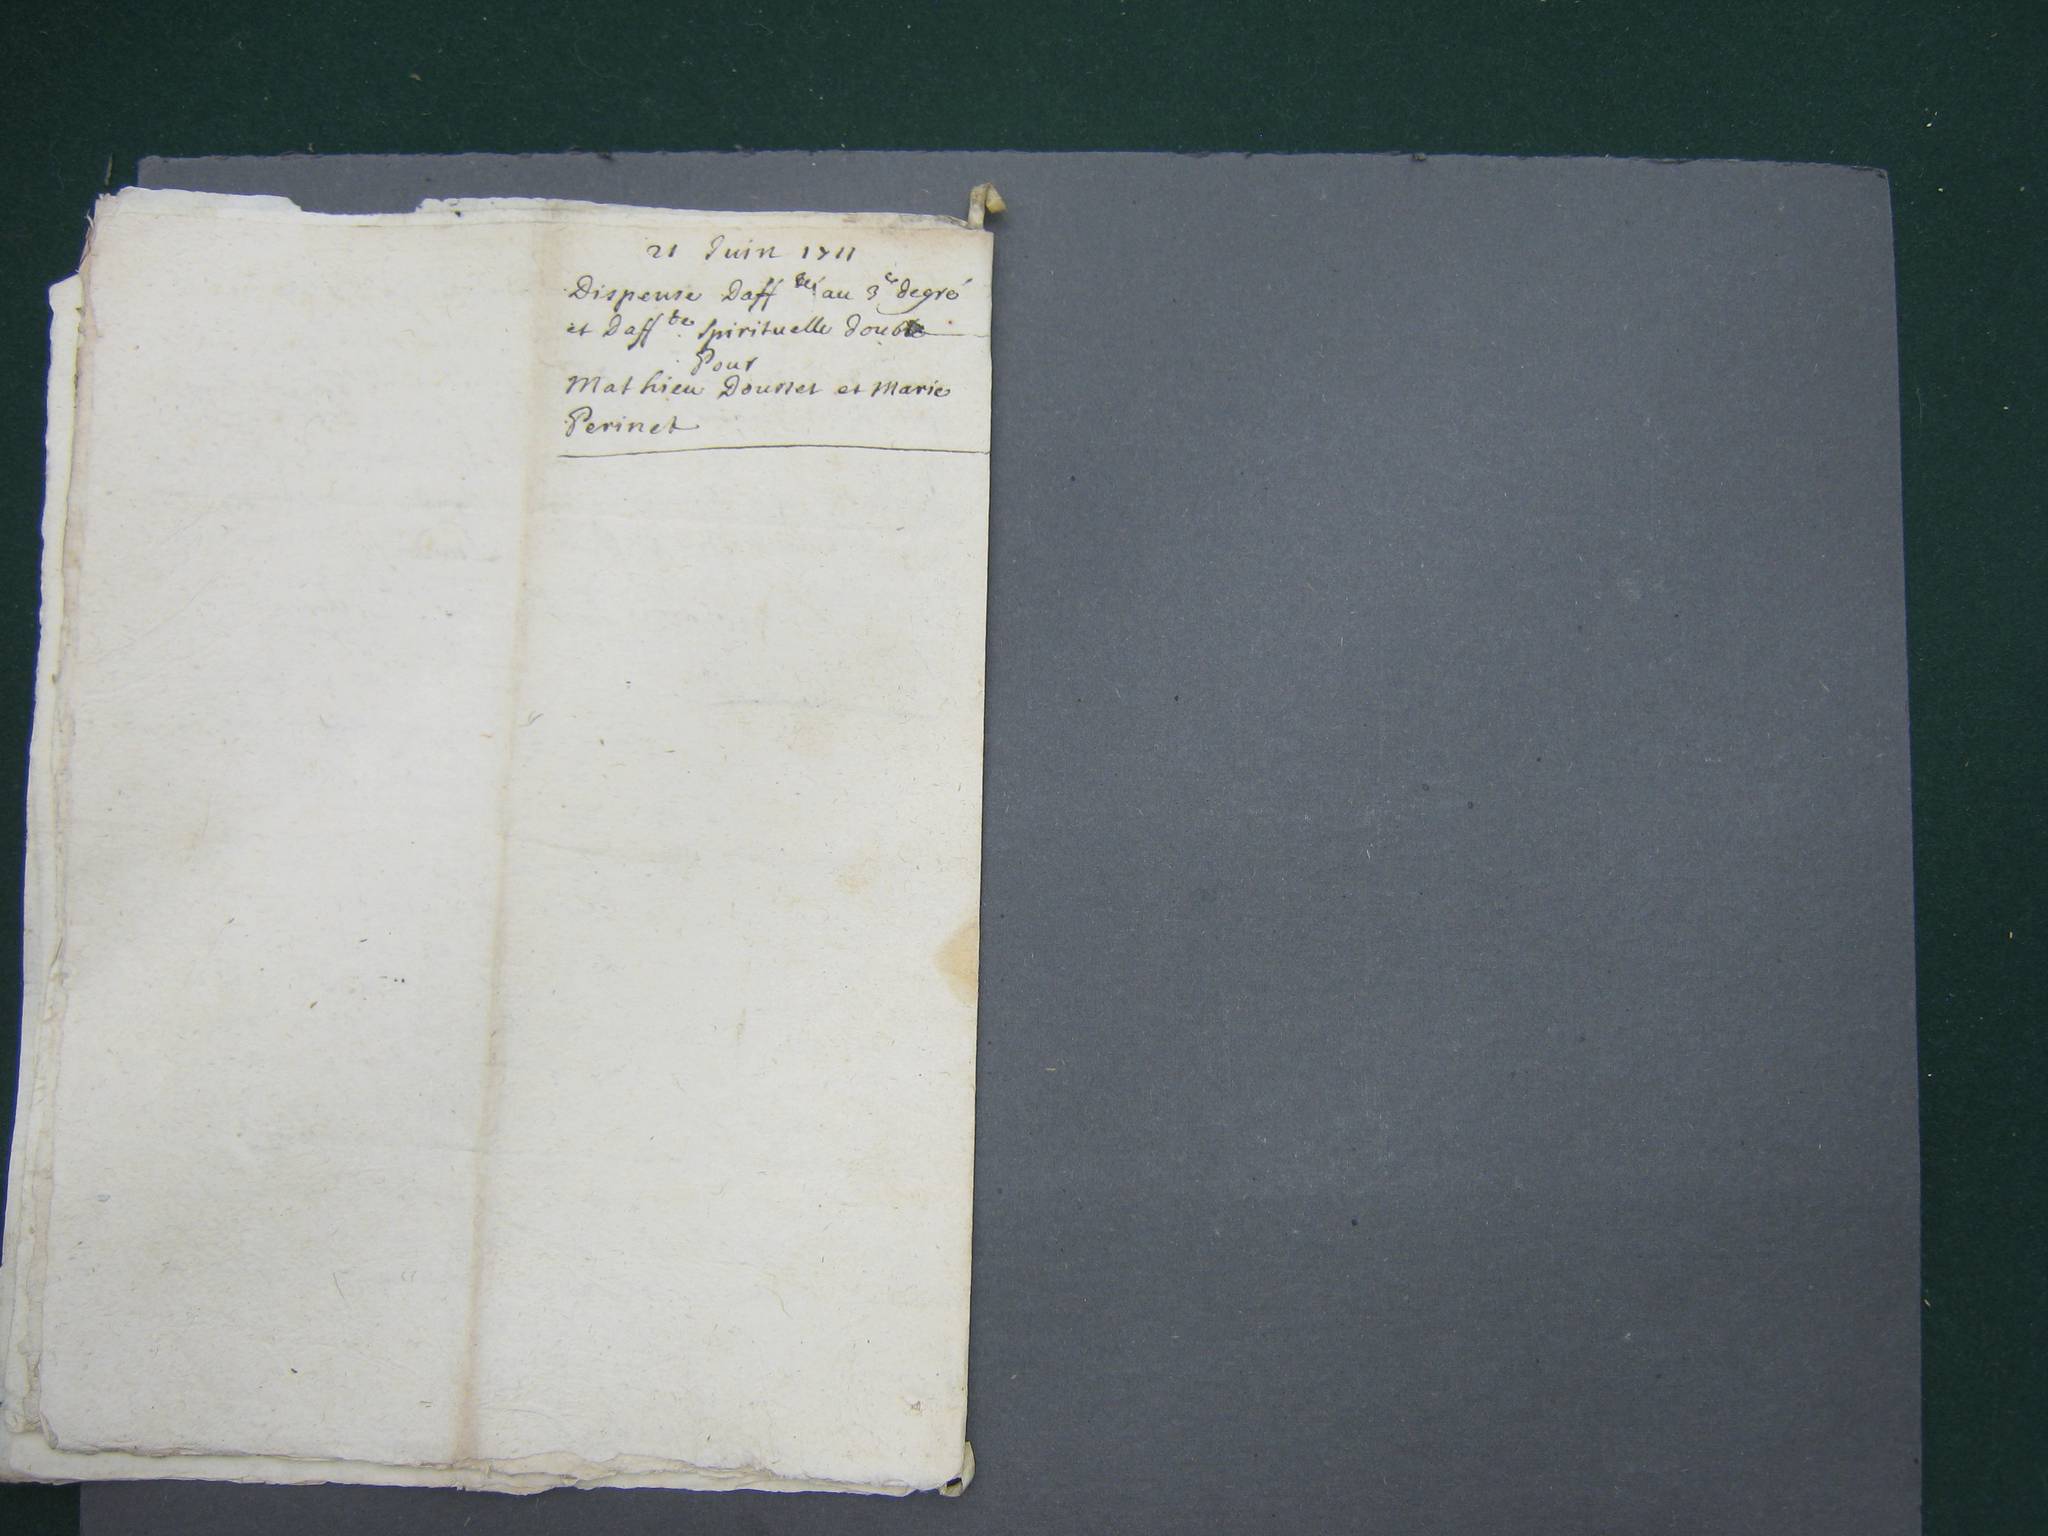 21 Juin 1711
Dispense Daff.té au 3e degré
et Daff.te Spirituelle double
Pour
Mathieu Dousset et Marie
Perinet